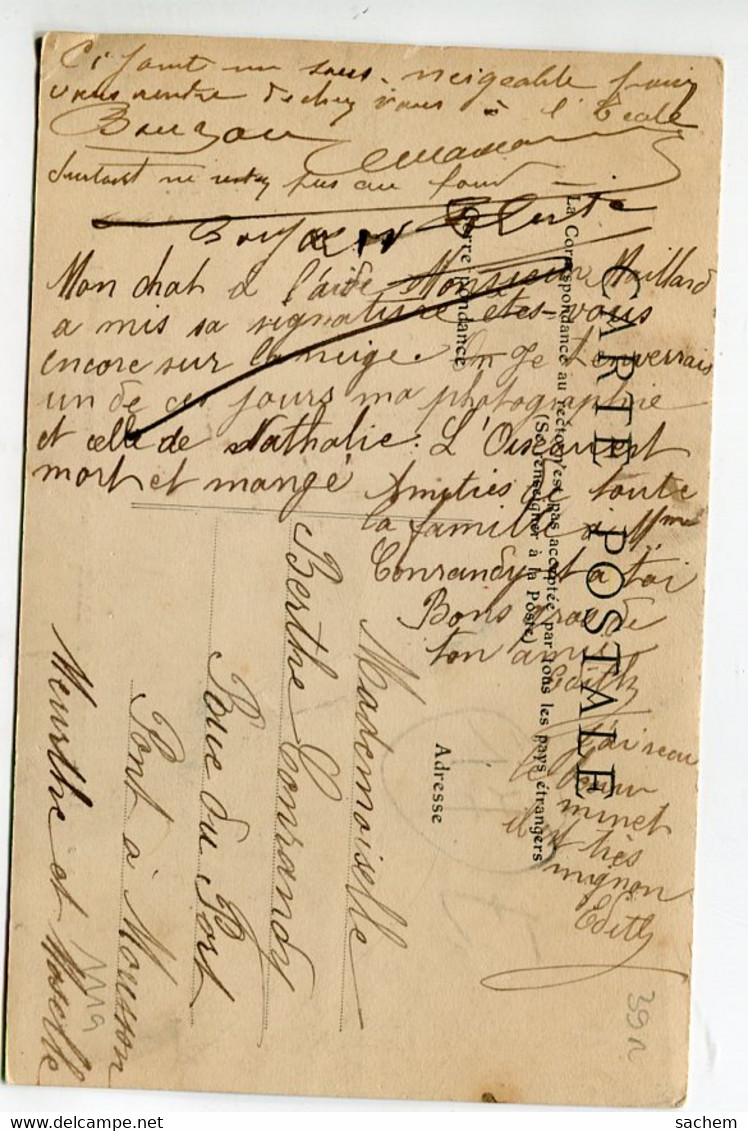 Ci joint un sous-neigeable pour
vous rendre de chez vous à l'Ecole
Surtout ne restez pas au fond
Mon chat a l'aide Monsieur Maillard
a mis sa signature êtes-vous
encore sur la neige. On Je t'enverrais
un de ces jours ma photographie
et celle de Nathalie: L'Ours est
mort et mangé Amitiés de toute
la famille à Mme
Conrandy et a toi
Bons gros de
ton amie
Edith
J'ai reçu
le beau
minet
il est très
mignon
Edith
CARTE POSTALE
La Correspondance au recto n'est pas acceptée par tous les pays étrangers
(Se renseigner à la Poste)
Correspondance
Adresse
Mademoiselle
Berthe Conrandy
Rue du Port
Pont à Mousson
Meurthe et Moselle
39
delcampe.net
sachem